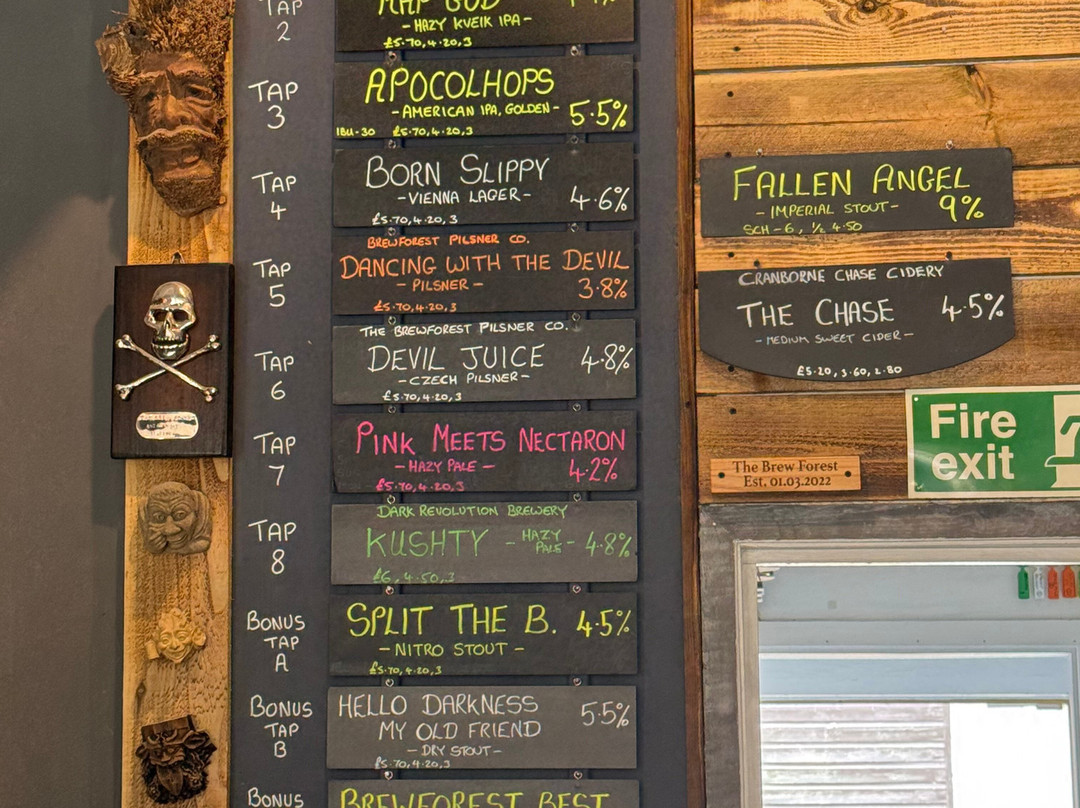 TAP
2
MAP GOD
- HAZY KVEIK IPA -
£5.70, 4.20, 3
TAP
3
APOCOLHOPS
- AMERICAN IPA, GOLDEN -
5.5%
IBU-30 £5.70, 4.20, 3
TAP
4
BORN SLIPPY
- VIENNA LAGER -
4.6%
£5.70, 4.20, 3
TAP
5
BREWFOREST PILSNER CO.
DANCING WITH THE DEVIL
- PILSNER -
3.8%
£5.70, 4.20, 3
TAP
6
THE BREWFOREST PILSNER CO.
DEVIL JUICE
4.8%
- CZECH PILSNER -
£5.70, 4.20, 3
TAP
7
PINK MEETS NECTARON
- HAZY PALE -
4.2%
£5.70, 4.20, 3
TAP
8
DARK REVOLUTION BREWERY
KUSHTY - HAZY PALE - 4.8%
£6, 4.50, 3
BONUS
TAP
A
SPLIT THE B. 4.5%
- NITRO STOUT -
£5.70, 4.20, 3
BONUS
TAP
B
HELLO DARKNESS
MY OLD FRIEND
5.5%
- DRY STOUT -
£5.70, 4.20, 3
BONUS
BREWFOREST BEST
FALLEN ANGEL
- IMPERIAL STOUT -
9%
SCH-6, ½ 4.50
CRANBORNE CHASE CIDERY
THE CHASE
4.5%
- MEDIUM SWEET CIDER -
£5.20, 3.60, 2.80
The Brew Forest
Est. 01.03.2022
Fire
exit